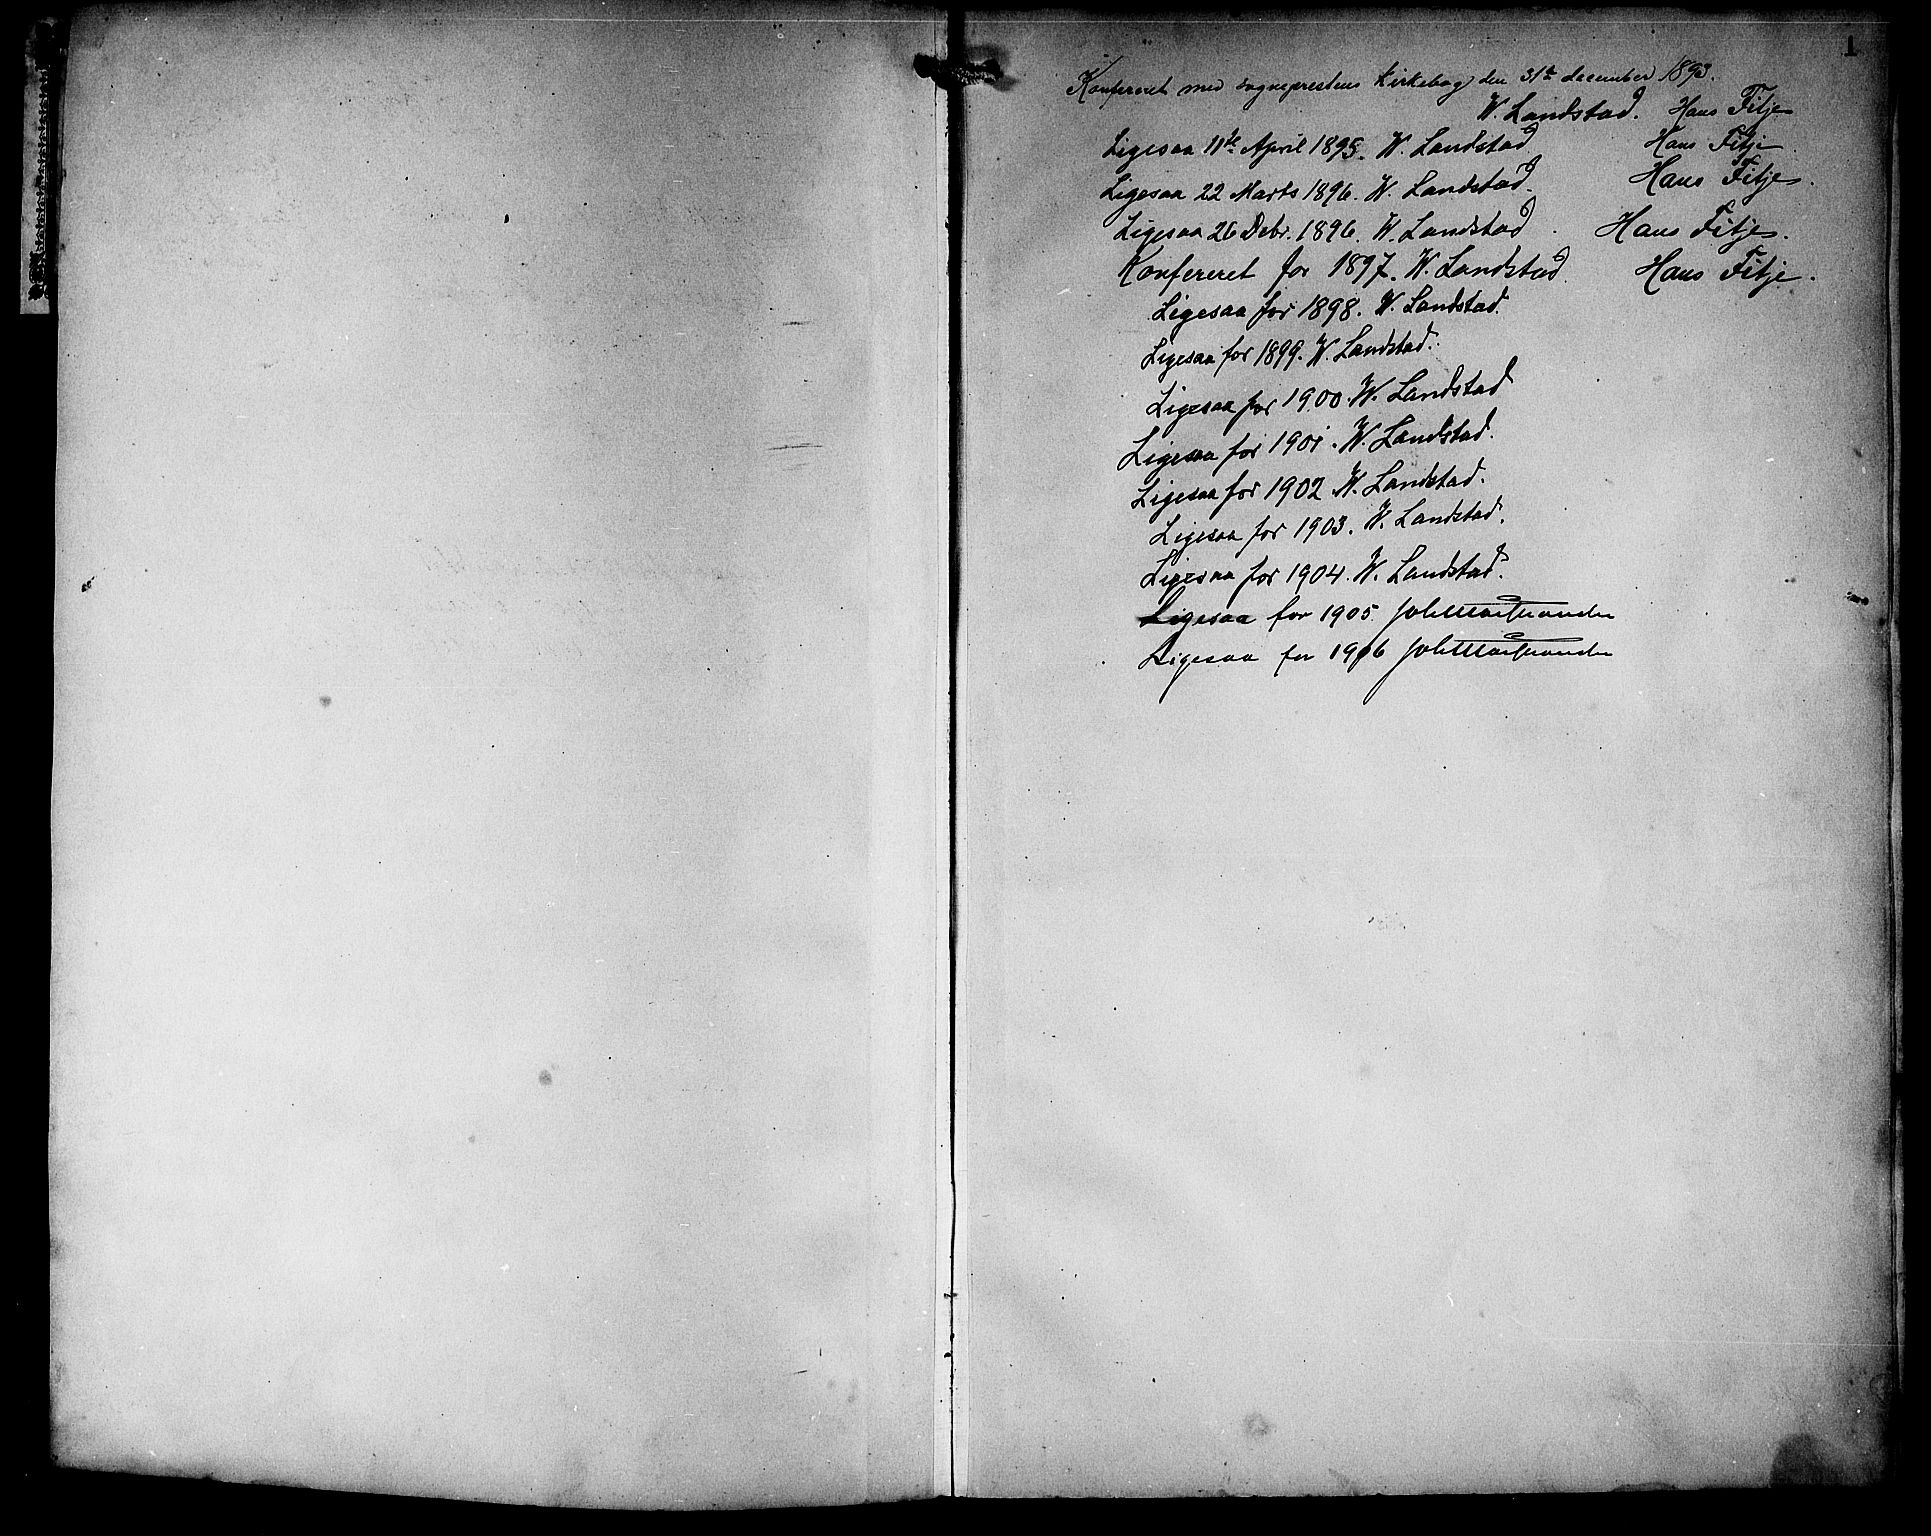 1
Konfereret med sogneprestens kirkebog den 31te december 1893.
W. Landstad. Hans Fitje
Ligesaa 11te April 1895. W. Landstad Hans Fitje
Ligesaa 22 Marts 1896. W. Landstad. Hans Fitje.
Ligesaa 26 Debr. 1896. W. Landstad. Hans Fitje.
Konfereret for 1897. W. Landstad. Hans Fitje.
Ligesaa for 1898. W. Landstad.
Ligesaa for 1899. W. Landstad.
Ligesaa for 1900. W. Landstad
Ligesaa for 1901. W. Landstad.
Ligesaa for 1902 W. Landstad.
Ligesaa for 1903. W. Landstad.
Ligesaa for 1904. W. Landstad.
Ligesaa for 1905
Ligesaa for 1906